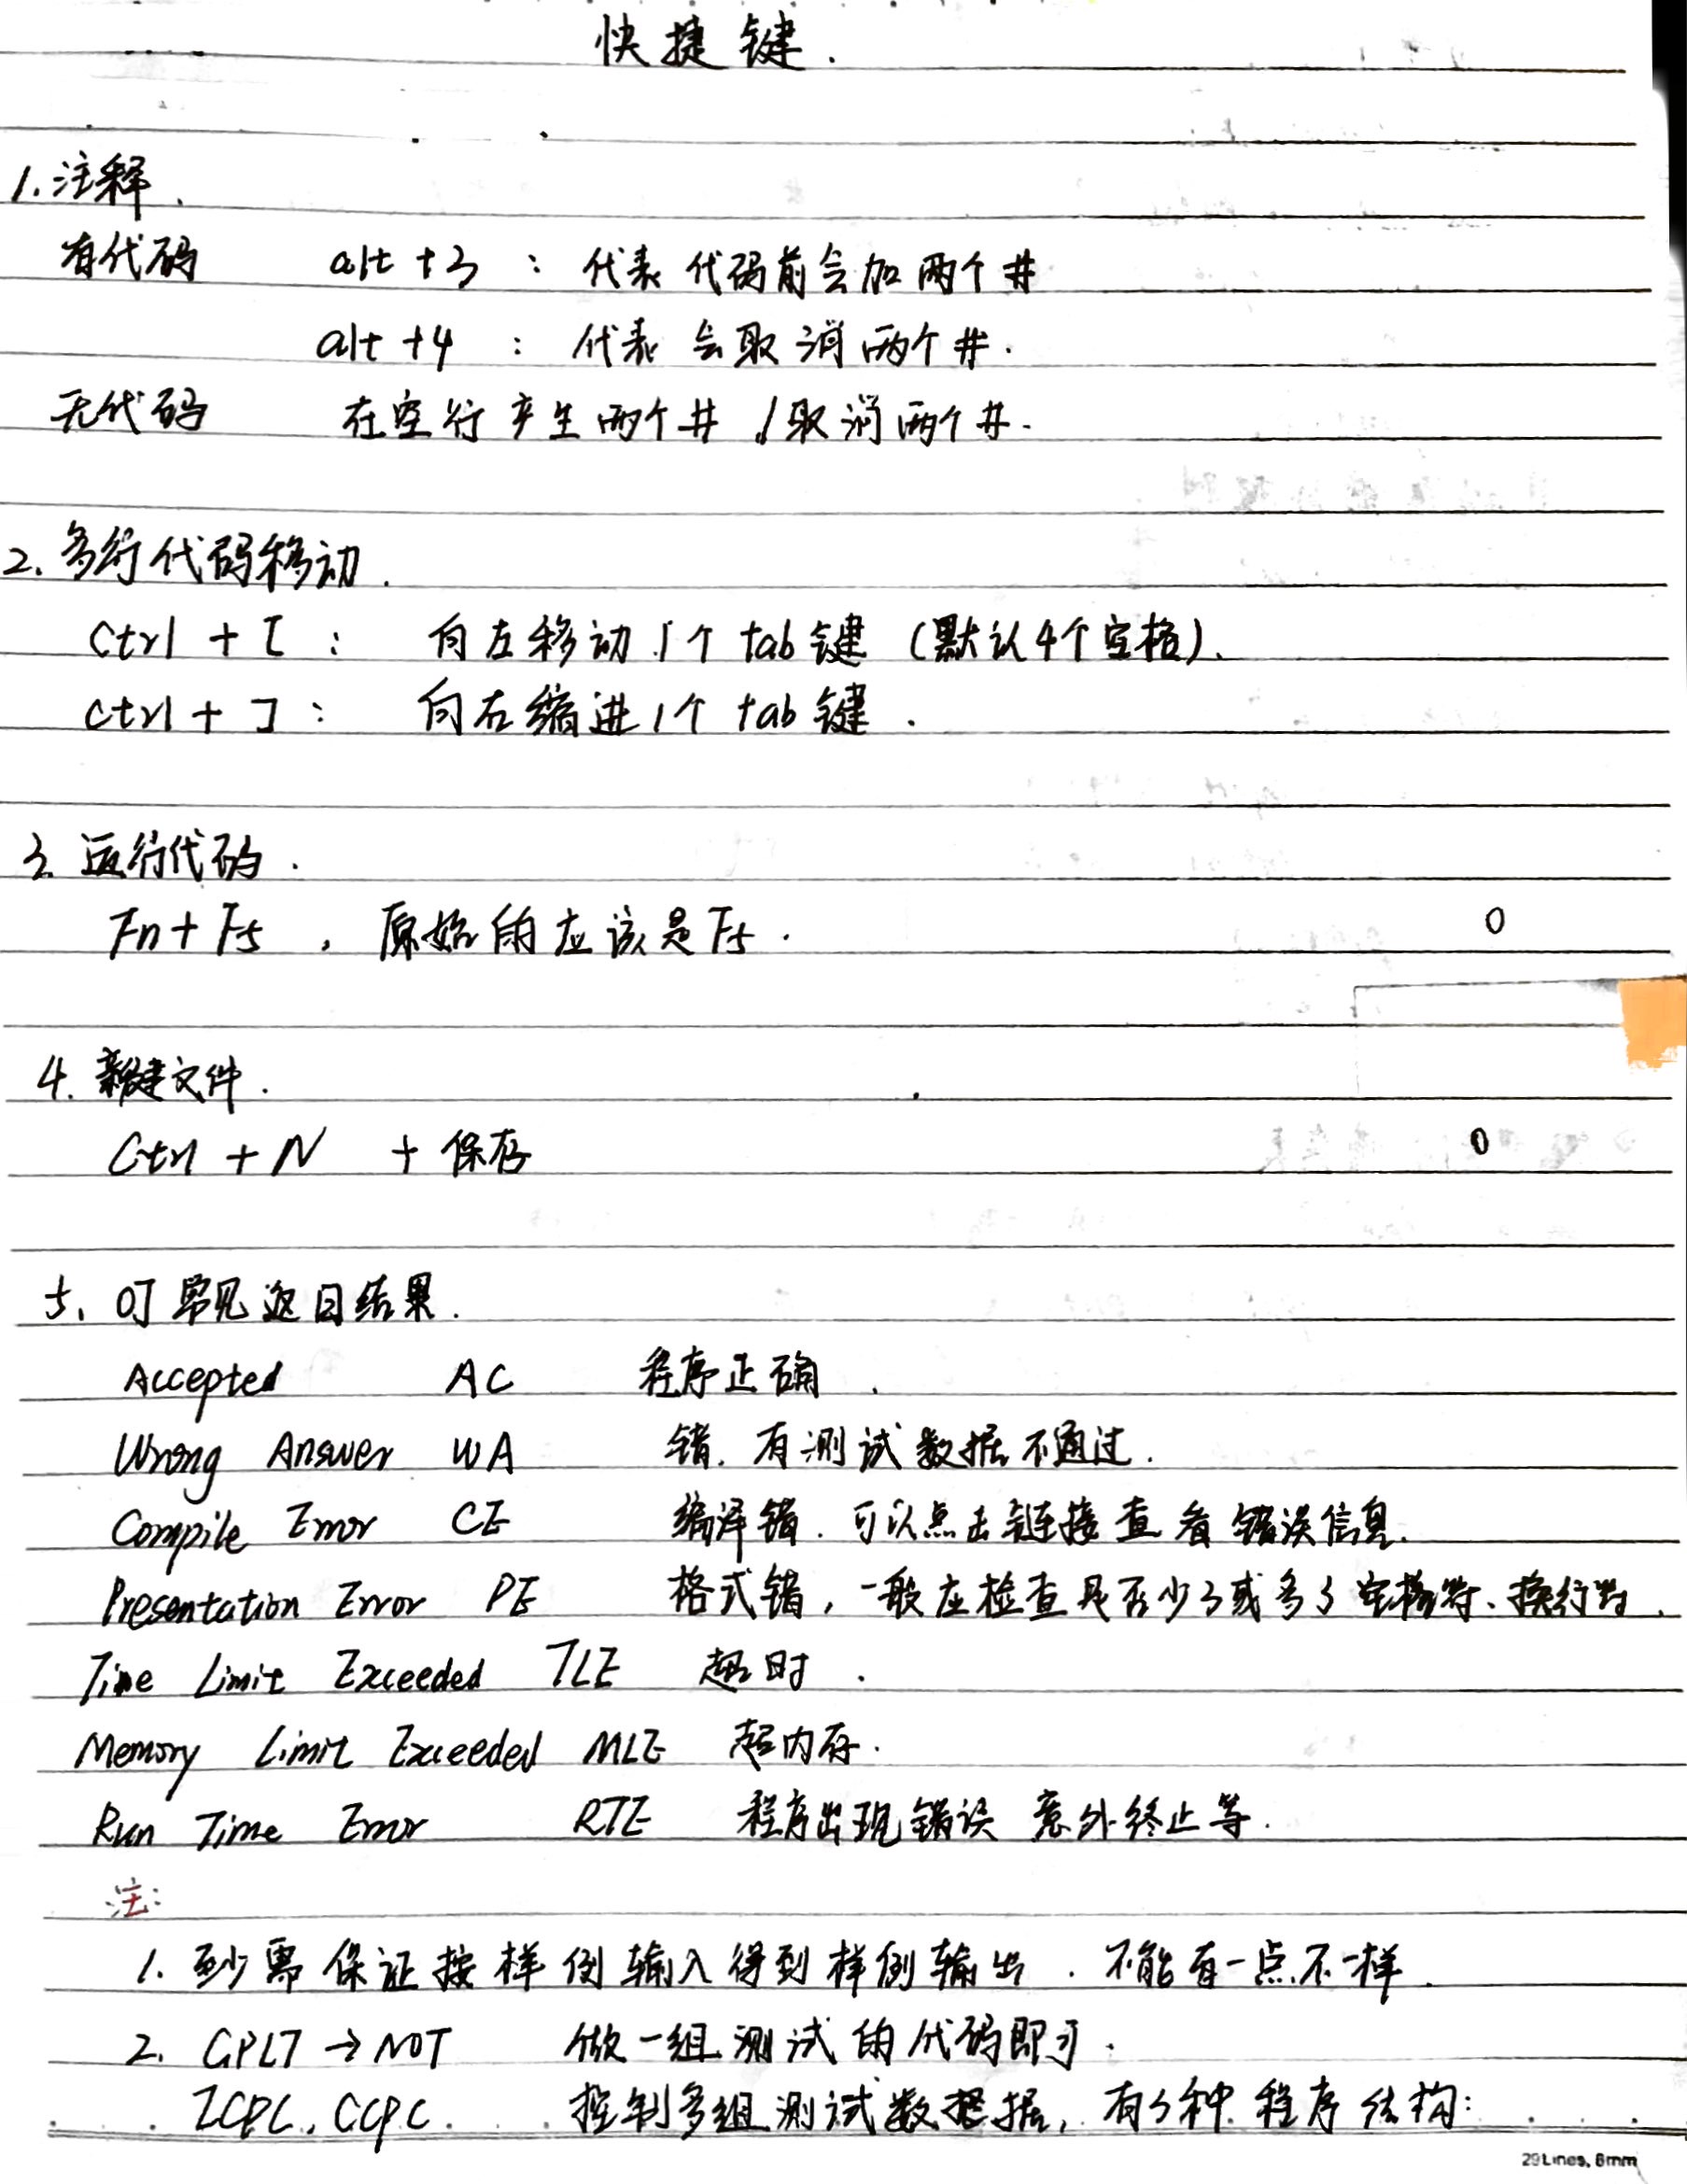 快捷键.
1.注释.
有代码 alt +3 : 代表 代码前会加两个#
alt +4 : 代表 会取消两个#.
无代码 在空行产生两个# /取消两个#.
2.多行代码移动.
Ctrl + [ : 向左移动1个 tab键 (默认4个空格).
Ctrl + ] : 向右缩进1个 tab键.
3.运行代码.
Fn+F5 , 原始的应该是F5.
0
4.新建文件.
Ctrl + N + 保存
0
5. OJ常见返回结果.
Accepted AC 程序正确.
Wrong Answer WA 错. 有测试数据不通过.
Compile Error CE 编译错. 可以点击链接查看错误信息.
Presentation Error PE 格式错, 一般应检查是否少了或多了空格符、换行符.
Time Limit Exceeded TLE 超时.
Memory Limit Exceeded MLE 超内存.
Run Time Error RTE 程序出现错误 意外终止等.
注:
1. 至少需保证按样例输入得到样例输出. 不能有一点不一样.
2. GPLT → NOT 做一组测试的代码即可.
ICPC, CCPC. 控制多组测试数据, 有3种程序结构:
29Lines, 8mm